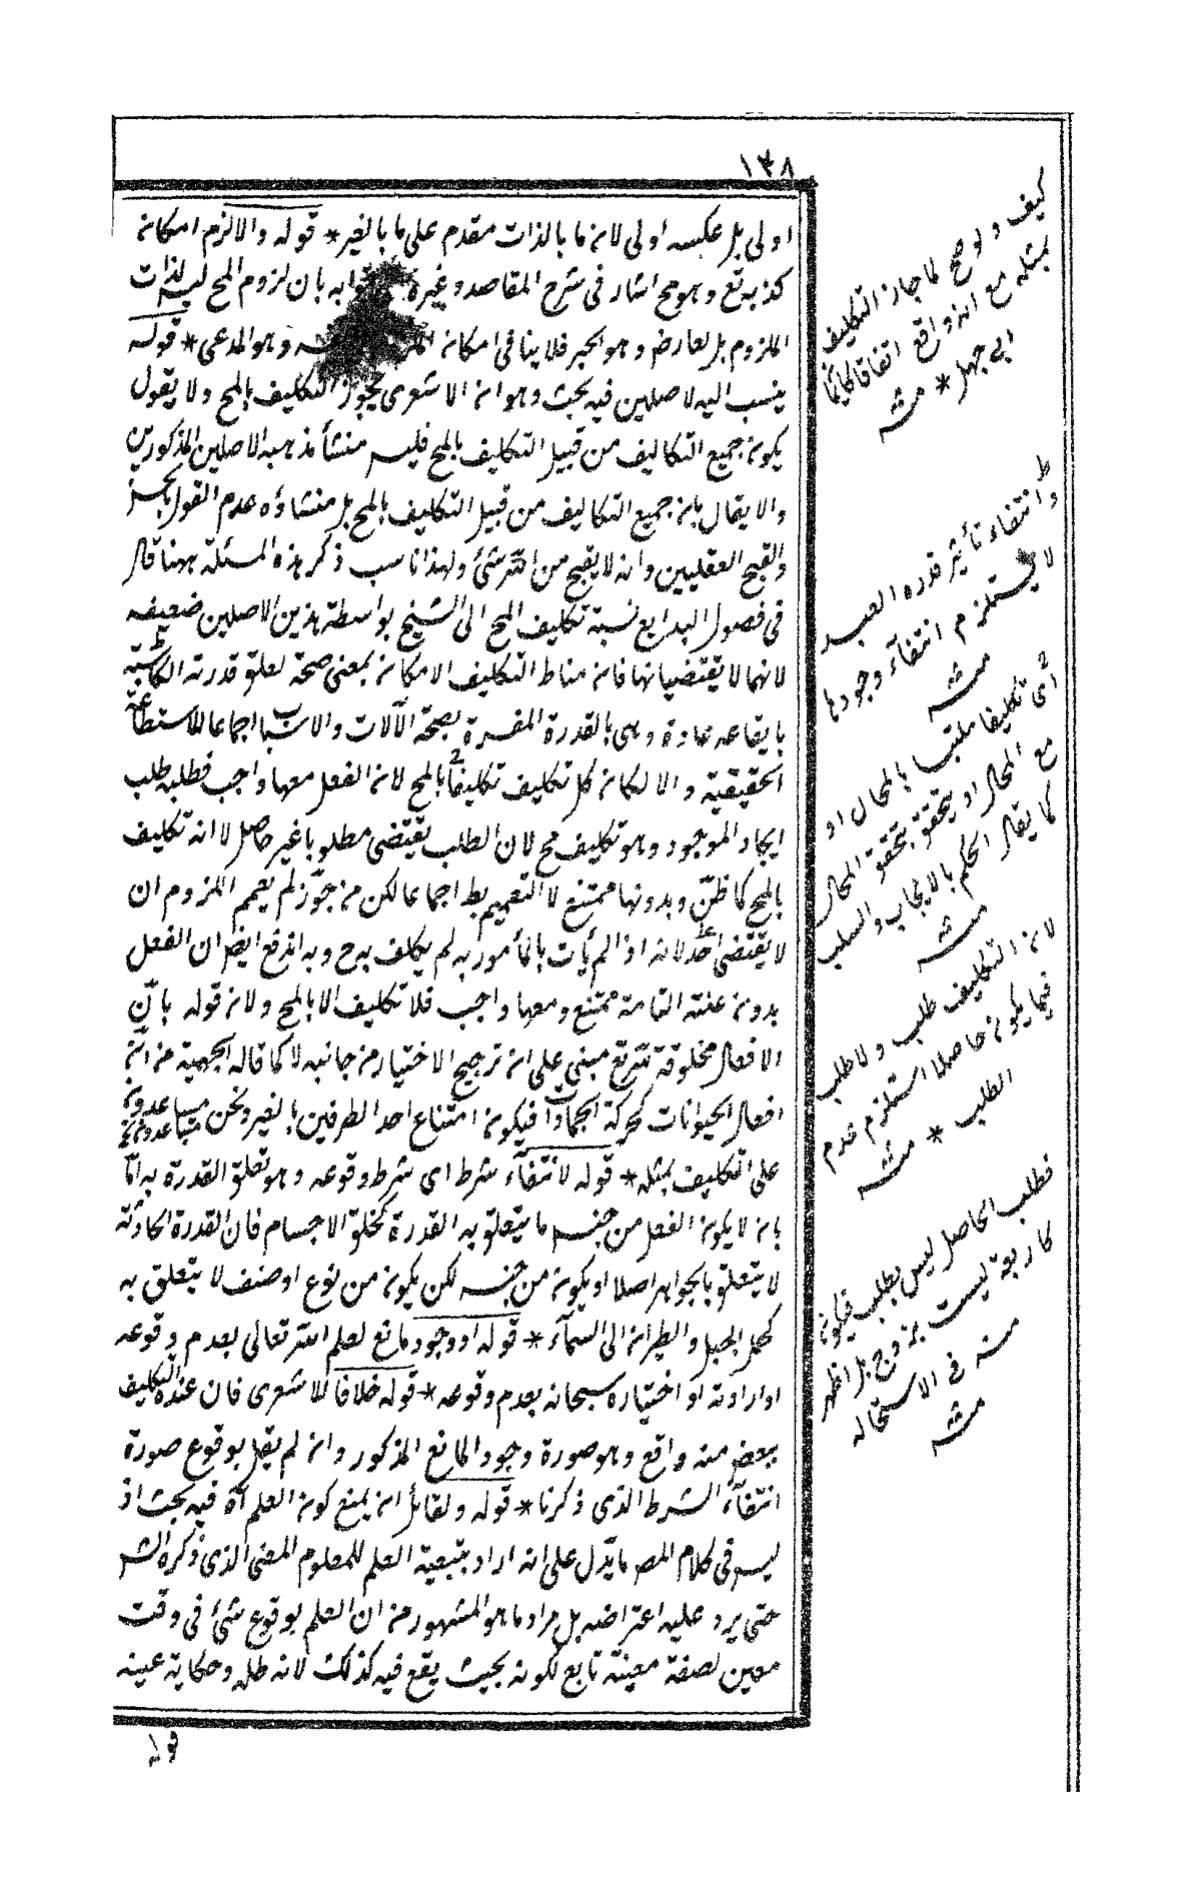 ١٣٨
اولى بل عكسه اولى لان ما بالذات مقدم على ما بالغير * قوله والا لزم امكان
كذبه تع وهو مح اشار فى شرح المقاصد وغيره جوابه بان لزوم المح ليس لذات
الملزوم بل لعارض وهو الخبر فلا ينافى امكان وهو المدعى * قوله
ينسب اليه لاصلين فيه بحث وهو ان الاشعرى يجوز التكليف بالمح ولا يقول
يكون جميع التكاليف من قبيل التكليف بالمح فليس منشأ مذهبه الاصلين المذكورين
والا يقال بان جميع التكاليف من قبيل التكليف بالمح بل منشاؤه عدم القول بالحسن
والقبح العقليين وانه لا يقبح من الله شئ ولهذا ناسب ذكر هذه المسئلة ههنا قال
فى فصول البدايع نسبة تكليف المح الى الشيخ بواسطة هذين الاصلين ضعيفه
لانهما لا يقتضيانها فان مناط التكليف الامكان بمعنى صحة تعلق قدرته الكاسبة
بايقاعه عادة وهى بالقدرة المفسرة بصحة الآلات والاسباب اجماعا للاستطاعة
الحقيقية والا لكان كل تكليف تكليفا بالمح لان الفعل معها واجب فطلبه طلب
ايجاد الموجود وهو تكليف مح لان الطلب يقتضى مطلوبا غير حاصل لا انه تكليف
بالمح كما ظن وبدونها ممتنع لا التعميم بط اجماعا لكن من جوّز لم يعمم الملزوم ان
لا يقتضى احد لانه اذا لم يأت بالمأمور به لم يكلف به ح وبه اندفع ايضا ان الفعل
بدون علته التامة ممتنع ومعها واجب فلا تكليف الا بالمح ولان قوله بان
الافعال مخلوقة لله تع مبنى على ان ترجيح الاختيار من جانبه لا كما قاله الجهمية من ان
افعال الحيوانات كحركة الجمادات فيكون امتناع احد الطرفين بالغير ونحن مساعدون
على التكليف بمثله * قوله لانتفاء شرط اى شرط وقوعه وهو تعلق القدرة به اما
بان لا يكون الفعل من جنس ما يتعلق به القدرة كخلق الاجسام فان القدرة الحادثة
لا يتعلق بالجواهر اصلا او يكون من جنسه لكن يكون من نوع او صنف لا يتعلق به
كحمل الجبل والطيران الى السمآء * قوله او وجود مانع لعلم الله تعالى بعدم وقوعه
او ارادته او اختياره سبحانه بعدم وقوعه * قوله خلافا للاشعرى فان عنده التكليف
ببعض منه واقع وهو صورة وجود المانع المذكور وان لم يقل بوقوع صورة
انتفآء الشرط الذى ذكرنا * قوله ولقائل ان يمنع كون العلم آه فيه بحث اذ
ليس فى كلام المص ما يدل على انه اراد بتبعية العلم للمعلوم المعنى الذى ذكره الش
حتى يرد عليه اعتراضه بل مراده ما هو المشهور من ان العلم بوقوع شئ فى وقت
معين لصفة معينة تابع لكونه بحيث يقع فيه كذلك لانه ظله وحكاية عينه
كيف ولو صح لما جاز التكليف
بمثله مع انه واقع اتفاقا كايمان
ابى جهل * منه
وانتفاء تأثير قدره العبد
لا يستلزم انتفآء وجودها
منه
اى تكليفا ملتبسا بالمحال او
مع المحال او يتحقق بتحقق المحال
كما يقال الحكم بالايجاب والسلب
منه
لان التكليف طلب ولا طلب
فيما يكون حاصلا استلزم عدم
الطلب * منه
فطلب الحاصل ليس بطلب فيكون
كاربعة ليست بزوج بل اظهر
منه فى الاستحاله
منه